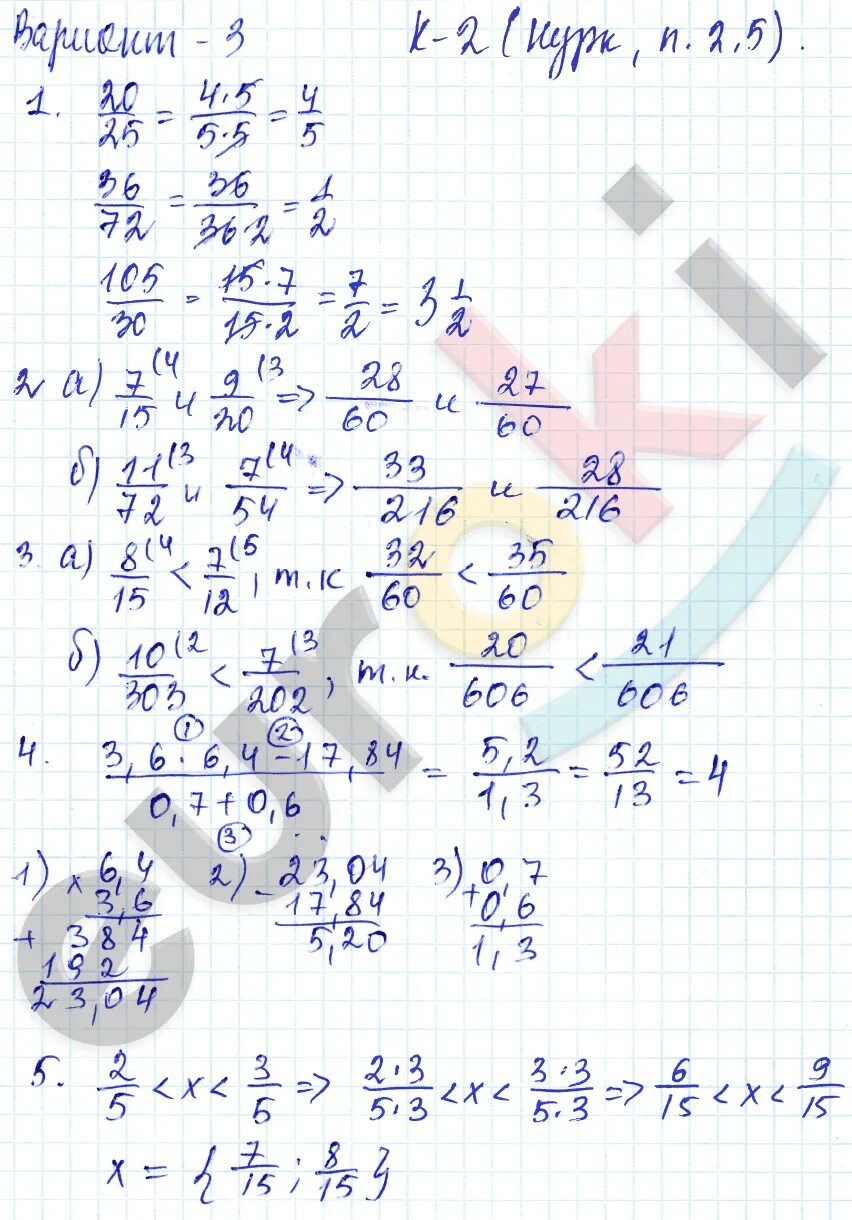 Вариант - 3 К-2 (Нурк, п. 2.5).
1. 20/25 = 4·5/5·5 = 4/5
36/72 = 36/36·2 = 1/2
105/30 = 15·7/15·2 = 7/2 = 3 1/2
2 а) 7(4/15 и 9(3/20 => 28/60 и 27/60
б) 11(3/72 и 7(4/54 => 33/216 и 28/216
3. а) 8(4/15 < 7(5/12, т.к 32/60 < 35/60
б) 10(2/303 < 7(3/202, т.к. 20/606 < 21/606
4. 3,6 ·① 6,4 -② 17,84 / 0,7 +③ 0,6 = 5,2/1,3 = 52/13 = 4
1) × 6,4 2) - 23,04 3) + 0,7
3,6 17,84 0,6
+ 384 5,20 1,3
192
23,04
5. 2/5 < x < 3/5 => 2·3/5·3 < x < 3·3/5·3 => 6/15 < x < 9/15
x = { 7/15 ; 8/15 }
euroki